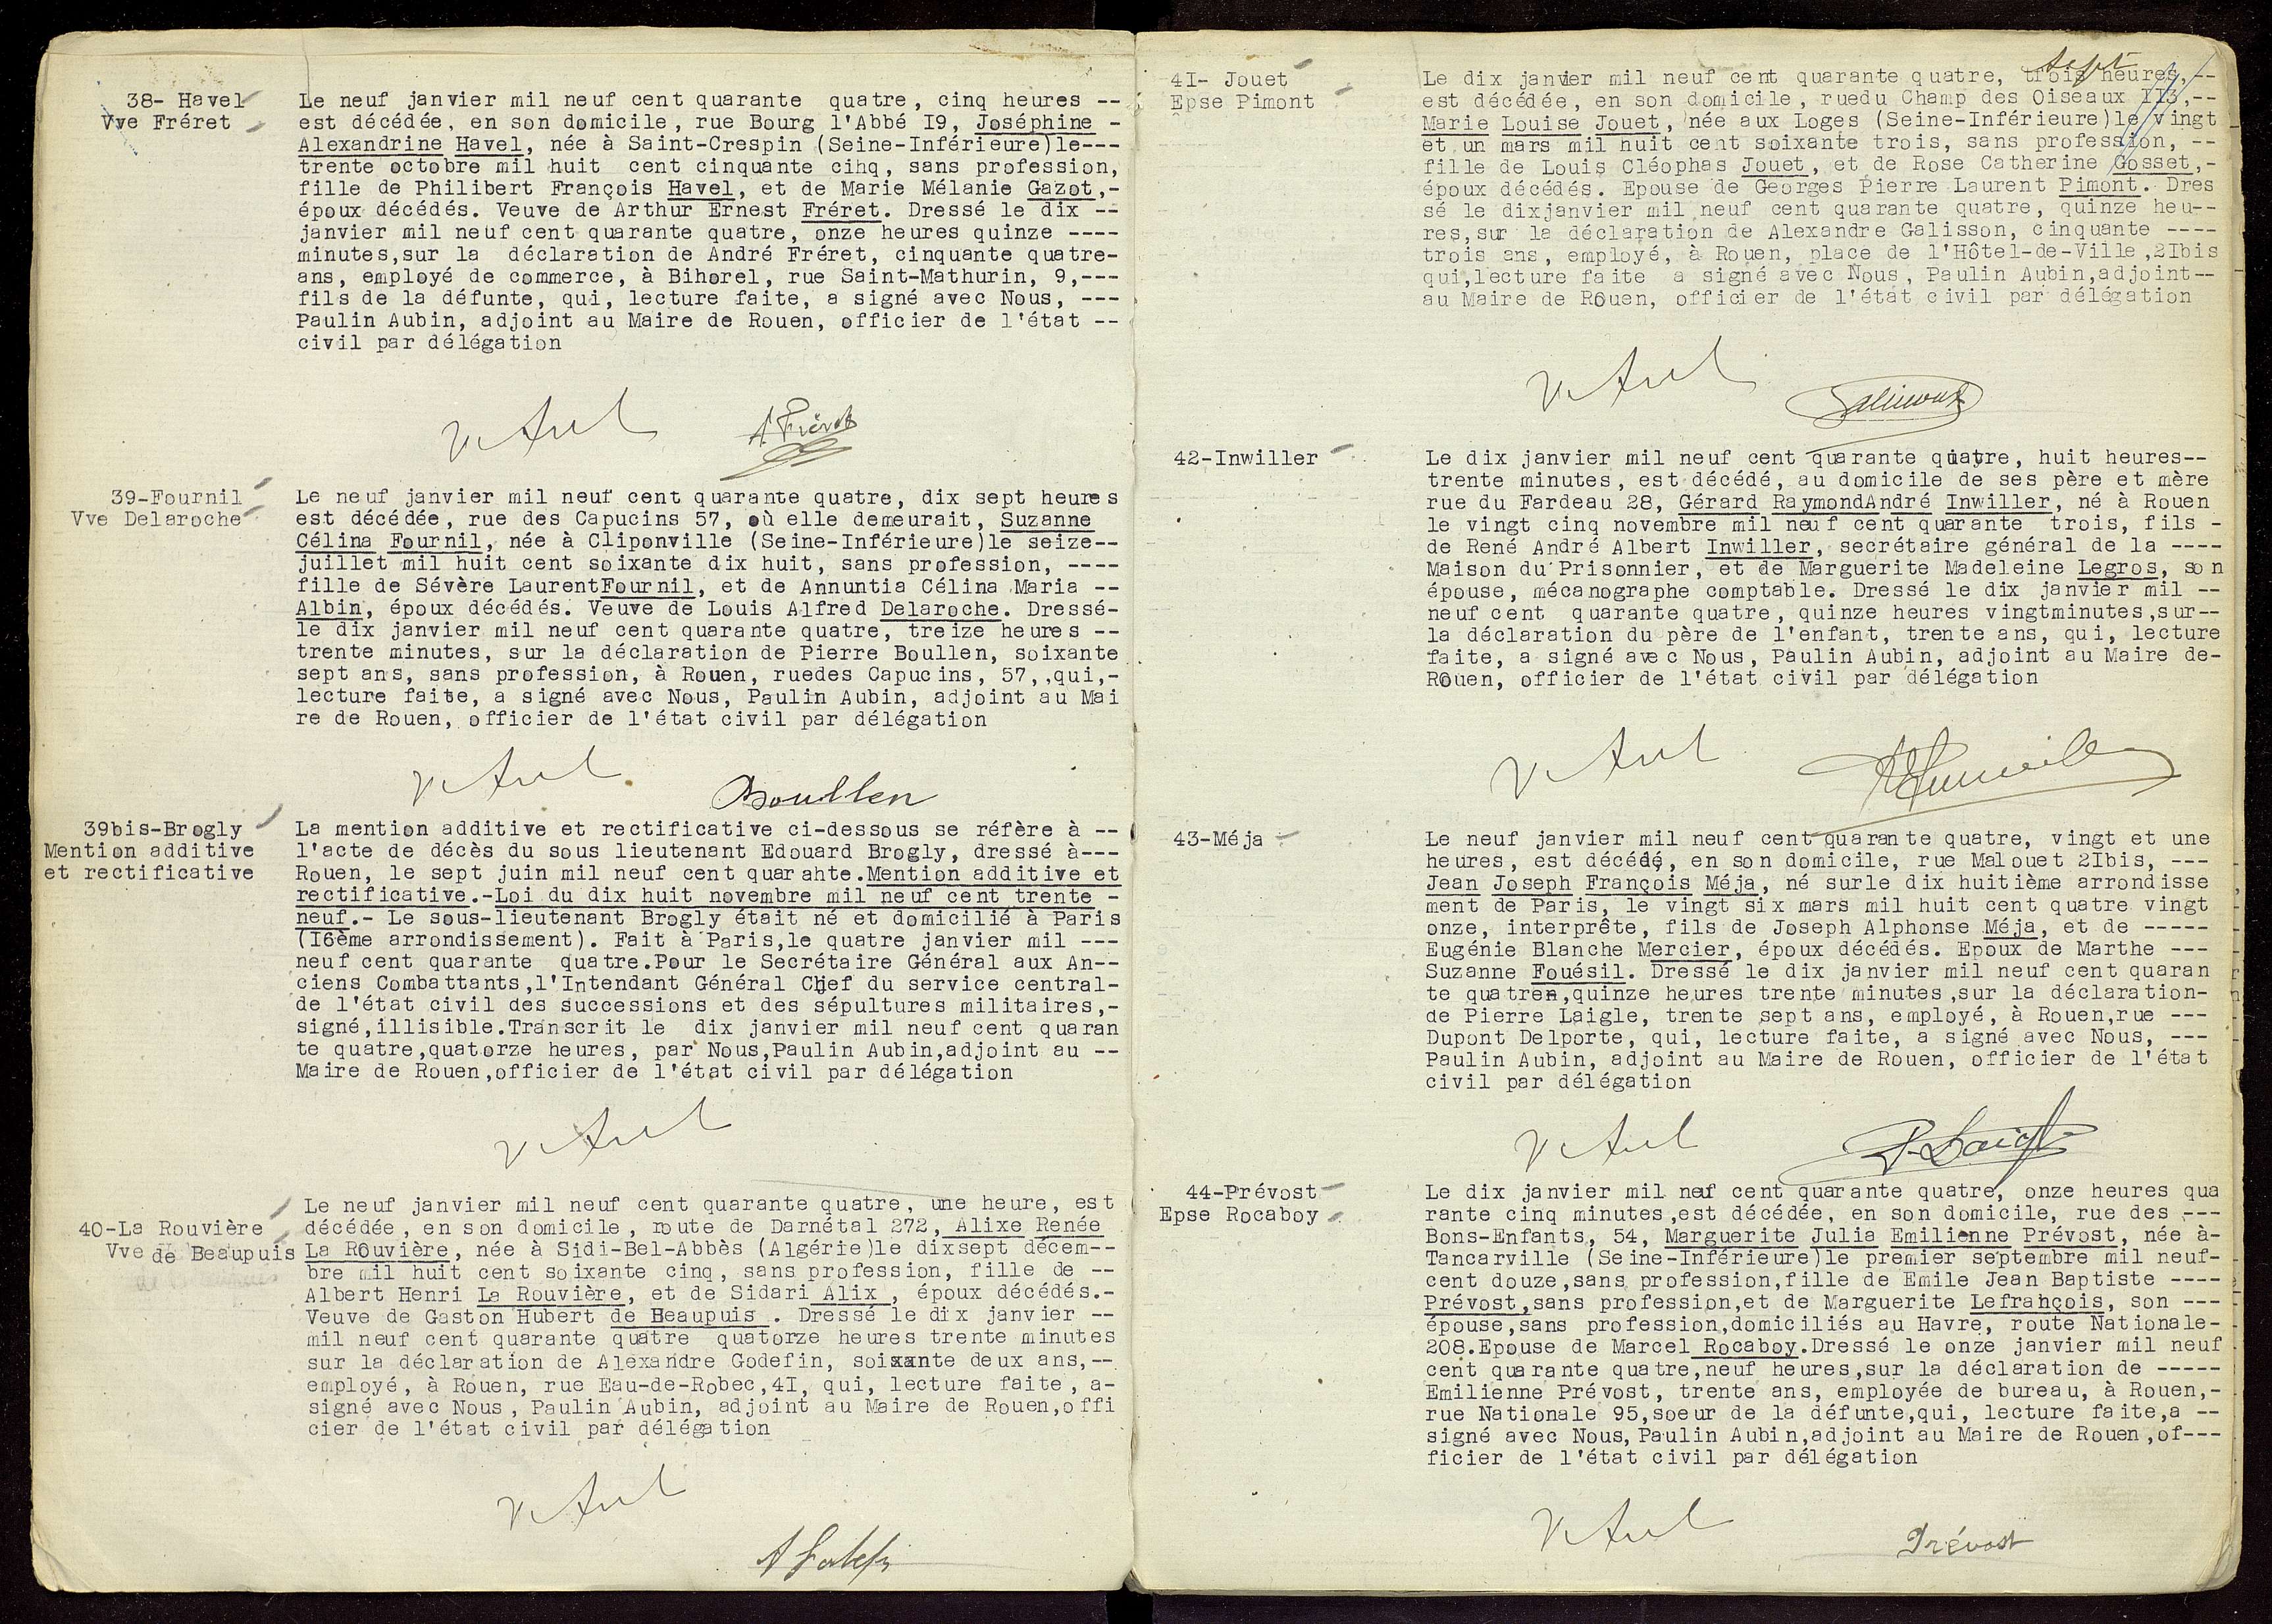 38- Havel
Vve Fréret
Le neuf janvier mil neuf cent quarante quatre, cinq heures --
est décédée, en son domicile, rue Bourg l'Abbé I9, Joséphine -
Alexandrine Havel, née à Saint-Crespin (Seine-Inférieure)le---
trente octobre mil huit cent cinquante cihq, sans profession,
fille de Philibert François Havel, et de Marie Mélanie Gazot,-
époux décédés. Veuve de Arthur Ernest Fréret. Dressé le dix --
janvier mil neuf cent quarante quatre, onze heures quinze ----
minutes,sur la déclaration de André Fréret, cinquante quatre-
ans, employé de commerce, à Bihorel, rue Saint-Mathurin, 9,---
fils de la défunte, qui, lecture faite, a signé avec Nous, ---
Paulin Aubin, adjoint au Maire de Rouen, officier de l'état --
civil par délégation
A. Fréret
39-Fournil
Vve Delaroche
Le neuf janvier mil neuf cent quarante quatre, dix sept heures
est décédée, rue des Capucins 57, où elle demeurait, Suzanne
Célina Fournil, née à Cliponville (Seine-Inférieure)le seize--
juillet mil huit cent soixante dix huit, sans profession, ----
fille de Sévère LaurentFournil, et de Annuntia Célina Maria --
Albin, époux décédés. Veuve de Louis Alfred Delaroche. Dressé-
le dix janvier mil neuf cent quarante quatre, treize heures --
trente minutes, sur la déclaration de Pierre Boullen, soixante
sept ans, sans profession, à Rouen, ruedes Capucins, 57,,qui,-
lecture faite, a signé avec Nous, Paulin Aubin, adjoint au Mai
re de Rouen, officier de l'état civil par délégation
Boullen
39bis-Brogly
Mention additive
et rectificative
La mention additive et rectificative ci-dessous se réfère à --
l'acte de décès du sous lieutenant Edouard Brogly, dressé à---
Rouen, le sept juin mil neuf cent quarahte.Mention additive et
rectificative.-Loi du dix huit novembre mil neuf cent trente -
neuf.- Le sous-lieutenant Brogly était né et domicilié à Paris
(I6ème arrondissement). Fait à Paris,le quatre janvier mil ---
neuf cent quarante quatre.Pour le Secrétaire Général aux An--
ciens Combattants,l'Intendant Général Chef du service central-
de l'état civil des successions et des sépultures militaires,-
signé,illisible.Transcrit le dix janvier mil neuf cent quaran
te quatre,quatorze heures, par Nous,Paulin Aubin,adjoint au --
Maire de Rouen,officier de l'état civil par délégation
40-La Rouvière
Vve de Beaupuis
Le neuf janvier mil neuf cent quarante quatre, une heure, est
décédée, en son domicile, route de Darnétal 272, Alixe Renée
La Rouvière, née à Sidi-Bel-Abbès (Algérie)le dixsept décem--
bre mil huit cent soixante cinq, sans profession, fille de --
Albert Henri La Rouvière, et de Sidari Alix , époux décédés.-
Veuve de Gaston Hubert de Beaupuis . Dressé le dix janvier --
mil neuf cent quarante quatre quatorze heures trente minutes
sur la déclaration de Alexandre Godefin, soixante deux ans,--
employé, à Rouen, rue Eau-de-Robec,4I, qui, lecture faite, a-
signé avec Nous, Paulin Aubin, adjoint au Maire de Rouen,offi
cier de l'état civil par délégation
41- Jouet
Epse Pimont
sept
Le dix janvier mil neuf cent quarante quatre, trois heures,--
est décédée, en son domicile, ruedu Champ des Oiseaux II3,--
Marie Louise Jouet, née aux Loges (Seine-Inférieure)le vingt
et un mars mil huit cent soixante trois, sans profession, --
fille de Louis Cléophas Jouet, et de Rose Catherine Gosset,-
époux décédés. Epouse de Georges Pierre Laurent Pimont. Dres
sé le dixjanvier mil neuf cent quarante quatre, quinze heu--
res,sur la déclaration de Alexandre Galisson, cinquante ----
trois ans, employé, à Rouen, place de l'Hôtel-de-Ville,2Ibis
qui,lecture faite a signé avec Nous, Paulin Aubin,adjoint--
au Maire de Rouen, officier de l'état civil par délégation
42-Inwiller
Le dix janvier mil neuf cent quarante quatre, huit heures--
trente minutes, est décédé, au domicile de ses père et mère
rue du Fardeau 28, Gérard RaymondAndré Inwiller, né à Rouen
le vingt cinq novembre mil neuf cent quarante trois, fils -
de René André Albert Inwiller, secrétaire général de la ----
Maison du Prisonnier, et de Marguerite Madeleine Legros, son
épouse, mécanographe comptable. Dressé le dix janvier mil --
neuf cent quarante quatre, quinze heures vingtminutes,sur--
la déclaration du père de l'enfant, trente ans, qui, lecture
faite, a signé avec Nous, Paulin Aubin, adjoint au Maire de-
Rouen, officier de l'état civil par délégation
43-Méja
Le neuf janvier mil neuf cent quarante quatre, vingt et une
heures, est décédé, en son domicile, rue Malouet 2Ibis, ---
Jean Joseph François Méja, né surle dix huitième arrondisse
ment de Paris, le vingt six mars mil huit cent quatre vingt
onze, interprête, fils de Joseph Alphonse Méja, et de -----
Eugénie Blanche Mercier, époux décédés. Epoux de Marthe ---
Suzanne Fouésil. Dressé le dix janvier mil neuf cent quaran
te quatren,quinze heures trente minutes,sur la déclaration-
de Pierre Laigle, trente sept ans, employé, à Rouen,rue ---
Dupont Delporte, qui, lecture faite, a signé avec Nous, ---
Paulin Aubin, adjoint au Maire de Rouen, officier de l'état
civil par délégation
P. Laigle
44-Prévost
Epse Rocaboy
Le dix janvier mil neuf cent quarante quatre, onze heures qua
rante cinq minutes,est décédée, en son domicile, rue des ---
Bons-Enfants, 54, Marguerite Julia Emilienne Prévost, née à-
Tancarville (Seine-Inférieure)le premier septembre mil neuf-
cent douze,sans profession,fille de Emile Jean Baptiste ----
Prévost,sans profession,et de Marguerite Lefrahçois, son ---
épouse,sans profession,domiciliés au Havre, route Nationale-
208.Epouse de Marcel Rocaboy.Dressé le onze janvier mil neuf
cent quarante quatre,neuf heures,sur la déclaration de -----
Emilienne Prévost, trente ans, employée de bureau, à Rouen,-
rue Nationale 95,soeur de la défunte,qui, lecture faite,a --
signé avec Nous, Paulin Aubin,adjoint au Maire de Rouen,of---
ficier de l'état civil par délégation
Prévost